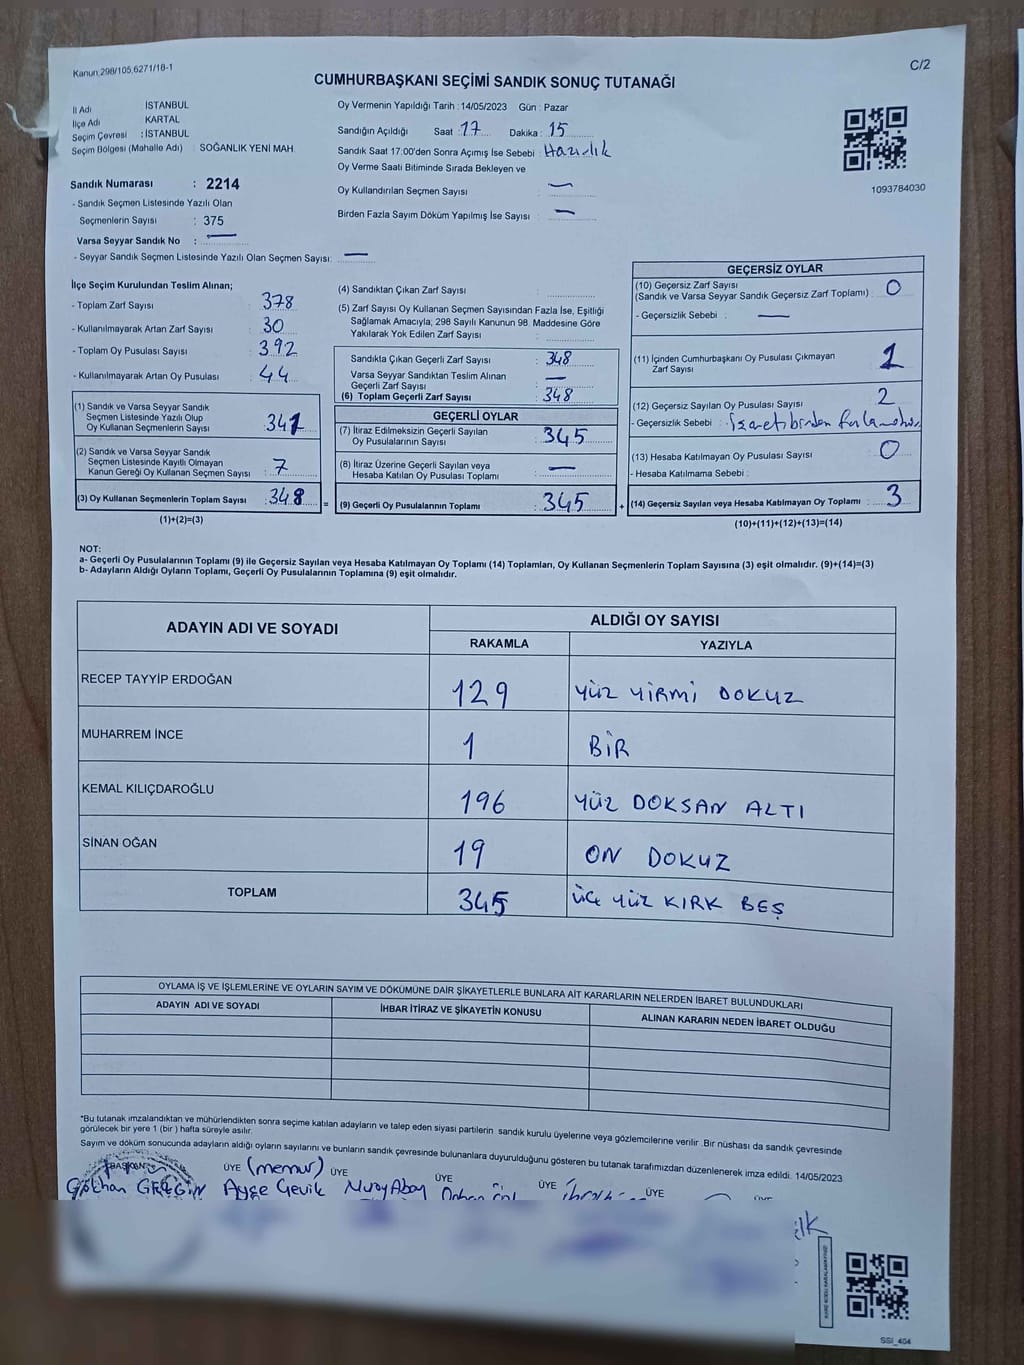 Kanun,298/105,6271/18-1
C/2
CUMHURBAŞKANI SEÇİMİ SANDIK SONUÇ TUTANAĞI
İl Adı İSTANBUL
İlçe Adı KARTAL
Seçim Çevresi : İSTANBUL
Seçim Bölgesi (Mahalle Adı) : SOĞANLIK YENİ MAH.
Sandık Numarası : 2214
- Sandık Seçmen Listesinde Yazılı Olan
Seçmenlerin Sayısı : 375
Varsa Seyyar Sandık No : —
- Seyyar Sandık Seçmen Listesinde Yazılı Olan Seçmen Sayısı: —
Oy Vermenin Yapıldığı Tarih : 14/05/2023 Gün : Pazar
Sandığın Açıldığı Saat : 17 Dakika : 15
Sandık Saat 17:00'den Sonra Açımış İse Sebebi : Hazırlık
Oy Verme Saati Bitiminde Sırada Bekleyen ve
Oy Kullandırılan Seçmen Sayısı : —
Birden Fazla Sayım Döküm Yapılmış İse Sayısı : —
1093784030
İlçe Seçim Kurulundan Teslim Alınan;
- Toplam Zarf Sayısı : 378
- Kullanılmayarak Artan Zarf Sayısı : 30
- Toplam Oy Pusulası Sayısı : 392
- Kullanılmayarak Artan Oy Pusulası : 44
(1) Sandık ve Varsa Seyyar Sandık
Seçmen Listesinde Yazılı Olup
Oy Kullanan Seçmenlerin Sayısı : 341
(2) Sandık ve Varsa Seyyar Sandık
Seçmen Listesinde Kayıtlı Olmayan
Kanun Gereği Oy Kullanan Seçmen Sayısı : 7
(3) Oy Kullanan Seçmenlerin Toplam Sayısı : 348
(1)+(2)=(3)
(4) Sandıktan Çıkan Zarf Sayısı :
(5) Zarf Sayısı Oy Kullanan Seçmen Sayısından Fazla İse, Eşitliği
Sağlamak Amacıyla; 298 Sayılı Kanunun 98. Maddesine Göre
Yakılarak Yok Edilen Zarf Sayısı :
Sandıkta Çıkan Geçerli Zarf Sayısı : 348
Varsa Seyyar Sandıktan Teslim Alınan
Geçerli Zarf Sayısı : —
(6) Toplam Geçerli Zarf Sayısı : 348
GEÇERLİ OYLAR
(7) İtiraz Edilmeksizin Geçerli Sayılan
Oy Pusulalarının Sayısı : 345
(8) İtiraz Üzerine Geçerli Sayılan veya
Hesaba Katılan Oy Pusulası Toplamı : —
= (9) Geçerli Oy Pusulalarının Toplamı : 345
GEÇERSİZ OYLAR
(10) Geçersiz Zarf Sayısı
(Sandık ve Varsa Seyyar Sandık Geçersiz Zarf Toplamı) : 0
- Geçersizlik Sebebi : —
(11) İçinden Cumhurbaşkanı Oy Pusulası Çıkmayan
Zarf Sayısı : 1
(12) Geçersiz Sayılan Oy Pusulası Sayısı : 2
- Geçersizlik Sebebi :
(13) Hesaba Katılmayan Oy Pusulası Sayısı : 0
- Hesaba Katılmama Sebebi :
+ (14) Geçersiz Sayılan veya Hesaba Katılmayan Oy Toplamı : 3
(10)+(11)+(12)+(13)=(14)
NOT:
a- Geçerli Oy Pusulalarının Toplamı (9) ile Geçersiz Sayılan veya Hesaba Katılmayan Oy Toplamı (14) Toplamları, Oy Kullanan Seçmenlerin Toplam Sayısına (3) eşit olmalıdır. (9)+(14)=(3)
b- Adayların Aldığı Oyların Toplamı, Geçerli Oy Pusulalarının Toplamına (9) eşit olmalıdır.
ADAYIN ADI VE SOYADI
ALDIĞI OY SAYISI
RAKAMLA YAZIYLA
RECEP TAYYİP ERDOĞAN 129 YÜZ YİRMİ DOKUZ
MUHARREM İNCE 1 BİR
KEMAL KILIÇDAROĞLU 196 YÜZ DOKSAN ALTI
SİNAN OĞAN 19 ON DOKUZ
TOPLAM 345 ÜÇ YÜZ KIRK BEŞ
OYLAMA İŞ VE İŞLEMLERİNE VE OYLARIN SAYIM VE DÖKÜMÜNE DAİR ŞİKAYETLERLE BUNLARA AİT KARARLARIN NELERDEN İBARET BULUNDUKLARI
ADAYIN ADI VE SOYADI İHBAR İTİRAZ VE ŞİKAYETİN KONUSU ALINAN KARARIN NEDEN İBARET OLDUĞU
*Bu tutanak imzalandıktan ve mühürlendikten sonra seçime katılan adayların ve talep eden siyasi partilerin sandık kurulu üyelerine veya gözlemcilerine verilir .Bir nüshası da sandık çevresinde
görülecek bir yere 1 (bir ) hafta süreyle asılır.
Sayım ve döküm sonucunda adayların aldığı oyların sayılarını ve bunların sandık çevresinde bulunanlara duyurulduğunu gösteren bu tutanak tarafımızdan düzenlenerek imza edildi. 14/05/2023
BAŞKAN ÜYE (memur) ÜYE ÜYE ÜYE ÜYE ÜYE
Gökhan Ayşe Gevik
SSİ_404